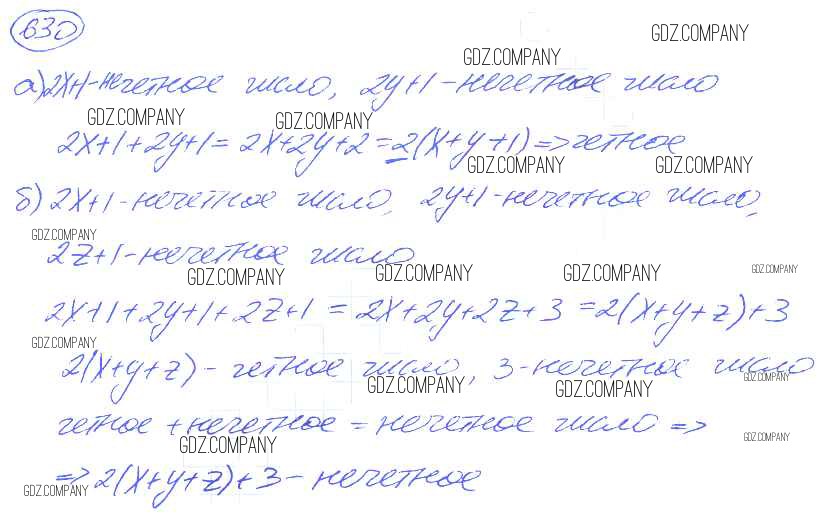 630
GDZ.COMPANY
GDZ.COMPANY
а) 2x+1 - нечетное число, 2y+1 - нечетное число
GDZ.COMPANY GDZ.COMPANY
2x+1+2y+1 = 2x+2y+2 = 2(x+y+1) => четное
GDZ.COMPANY GDZ.COMPANY
б) 2x+1 - нечетное число, 2y+1 - нечетное число,
GDZ.COMPANY
2z+1 - нечетное число
GDZ.COMPANY GDZ.COMPANY GDZ.COMPANY GDZ.COMPANY
2x+1+2y+1+2z+1 = 2x+2y+2z+3 = 2(x+y+z)+3
GDZ.COMPANY
2(x+y+z) - четное число, 3 - нечетное число
GDZ.COMPANY GDZ.COMPANY GDZ.COMPANY
четное + нечетное = нечетное число =>
GDZ.COMPANY GDZ.COMPANY
=> 2(x+y+z)+3 - нечетное
GDZ.COMPANY